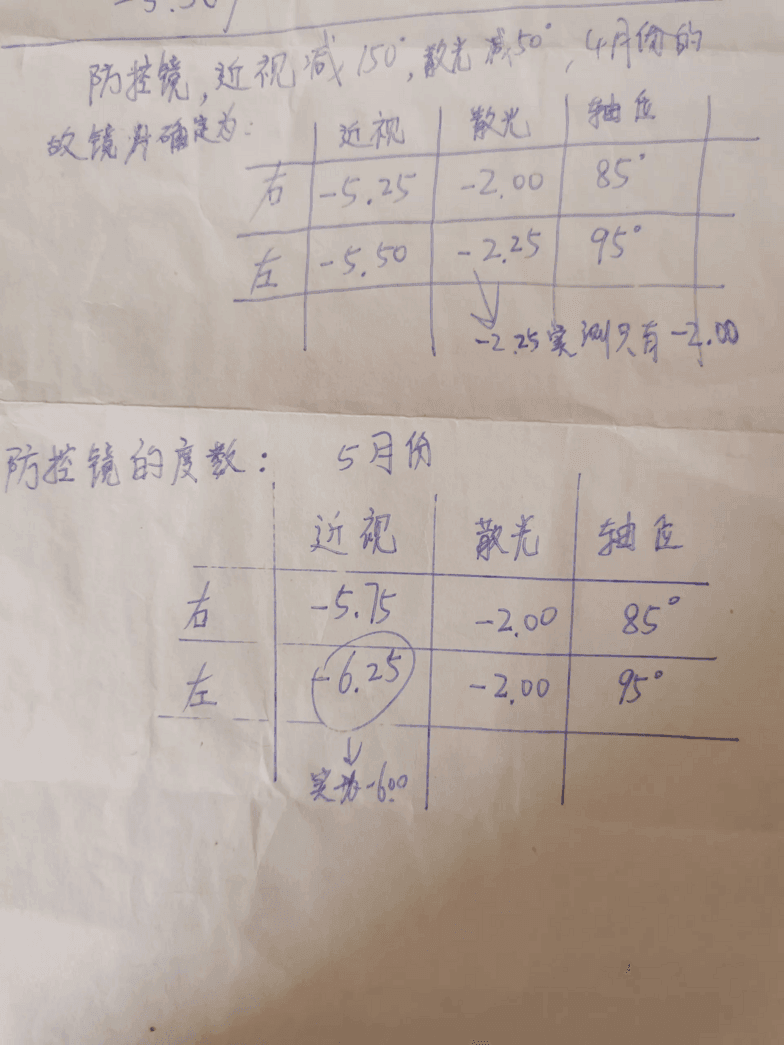 -5.50
防控镜,近视减150°,散光减50°,4月份的
故镜片确定为:
近视 散光 轴位
右 -5.25 -2.00 85°
左 -5.50 -2.25 95°
-2.25实测只有-2.00
防控镜的度数: 5月份
近视 散光 轴位
右 -5.75 -2.00 85°
左 -6.25 -2.00 95°
实为-600